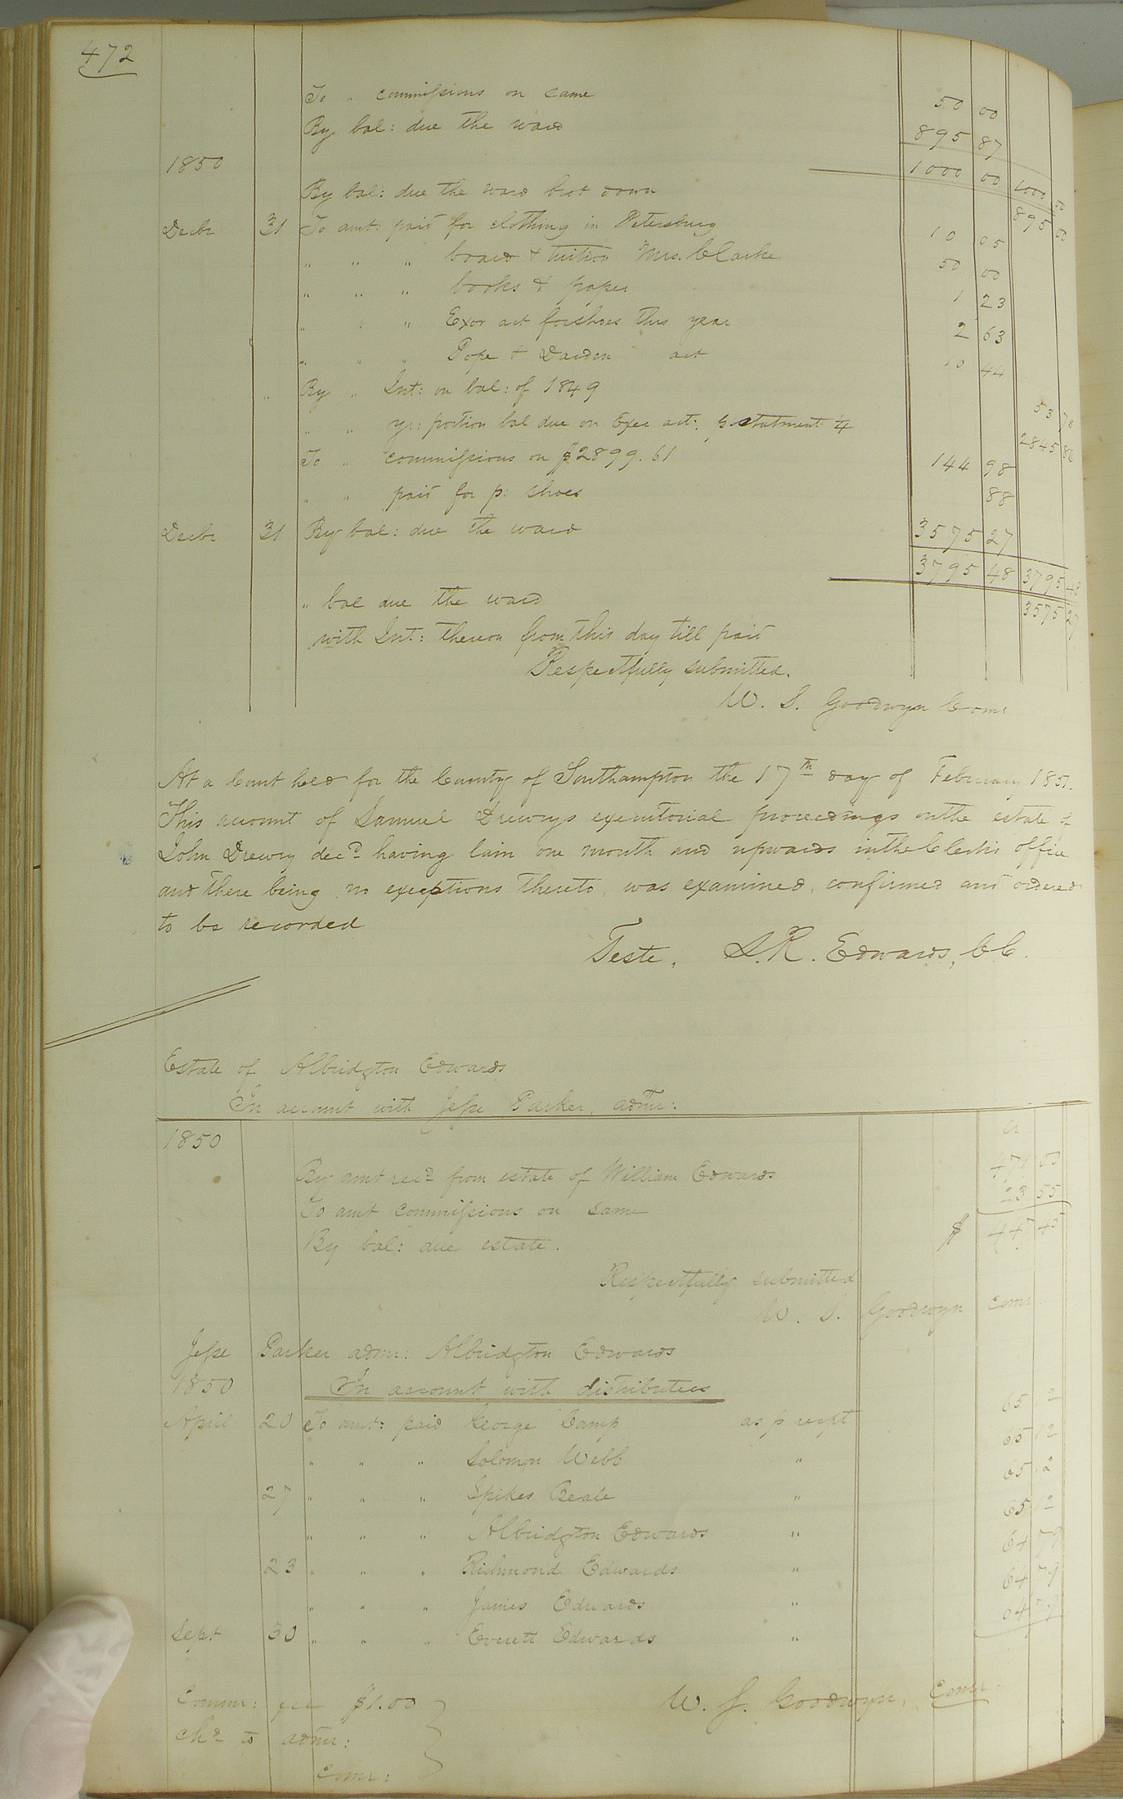 472
To " commissions on same 50 00
By bal: due the ward 895 87
1850 1000 00 1000 00
By bal: due the ward brot down 895
Decbr 31 To amt: paid for clothing in Petersburg 10 05
" " " board & tuition Mrs. Clarke 50 00
" " " books & paper 1 23
" " " Exor act for shoes this year 2 63
" " " Pope & Darden act 10 44
" By " Int: on bal: of 1849 53
" " yr: portion bal due on Exec act: p statment 4 2845
To " commissions on $2899.61 144 98
" " paid for p: shoes 88
Decbr 31 By bal: due the ward 3575 27
3795 48 3795 48
" bal due the ward 3575 27
with Int: thereon from this day till paid
Respectfully submitted.
W. S. Goodwyn Comr
At a Court held for the County of Southampton the 17th day of February 1851.
This account of Samuel Drewrys executorial proceedings on the estate of
John Drewry decd having lain one month and upwards in the Clerks office
and there being no exceptions thereto, was examined, confirmed and ordered
to be recorded
Teste, L. R. Edwards, CC.
Estate of Albridgton Edwards
In account with Jesse Parker, admr:
1850 Cr
By amt recd from estate of William Edwards 471 00
To amt commissions on same 23 55
By bal: due estate. $ 447 45
Respectfully submitted
W. S. Goodwyn comr
Jesse Parker admr: Albridgton Edwards
1850 In account with distributees
April 20 To amt: paid George Camp as p recpt 65 12
" " " Solomon Webb " 65 12
27 " " " Spikes Beale " 65 12
" " " Albridgton Edwards " 65 12
23 " " " Richmond Edwards " 64 79
" " " James Edwards " 64 79
Sept 30 " " " Everett Edwards " 64 79
Commr: fee $1.00
W. S. Goodwyn, Comr.
chd to admr:
Comr: